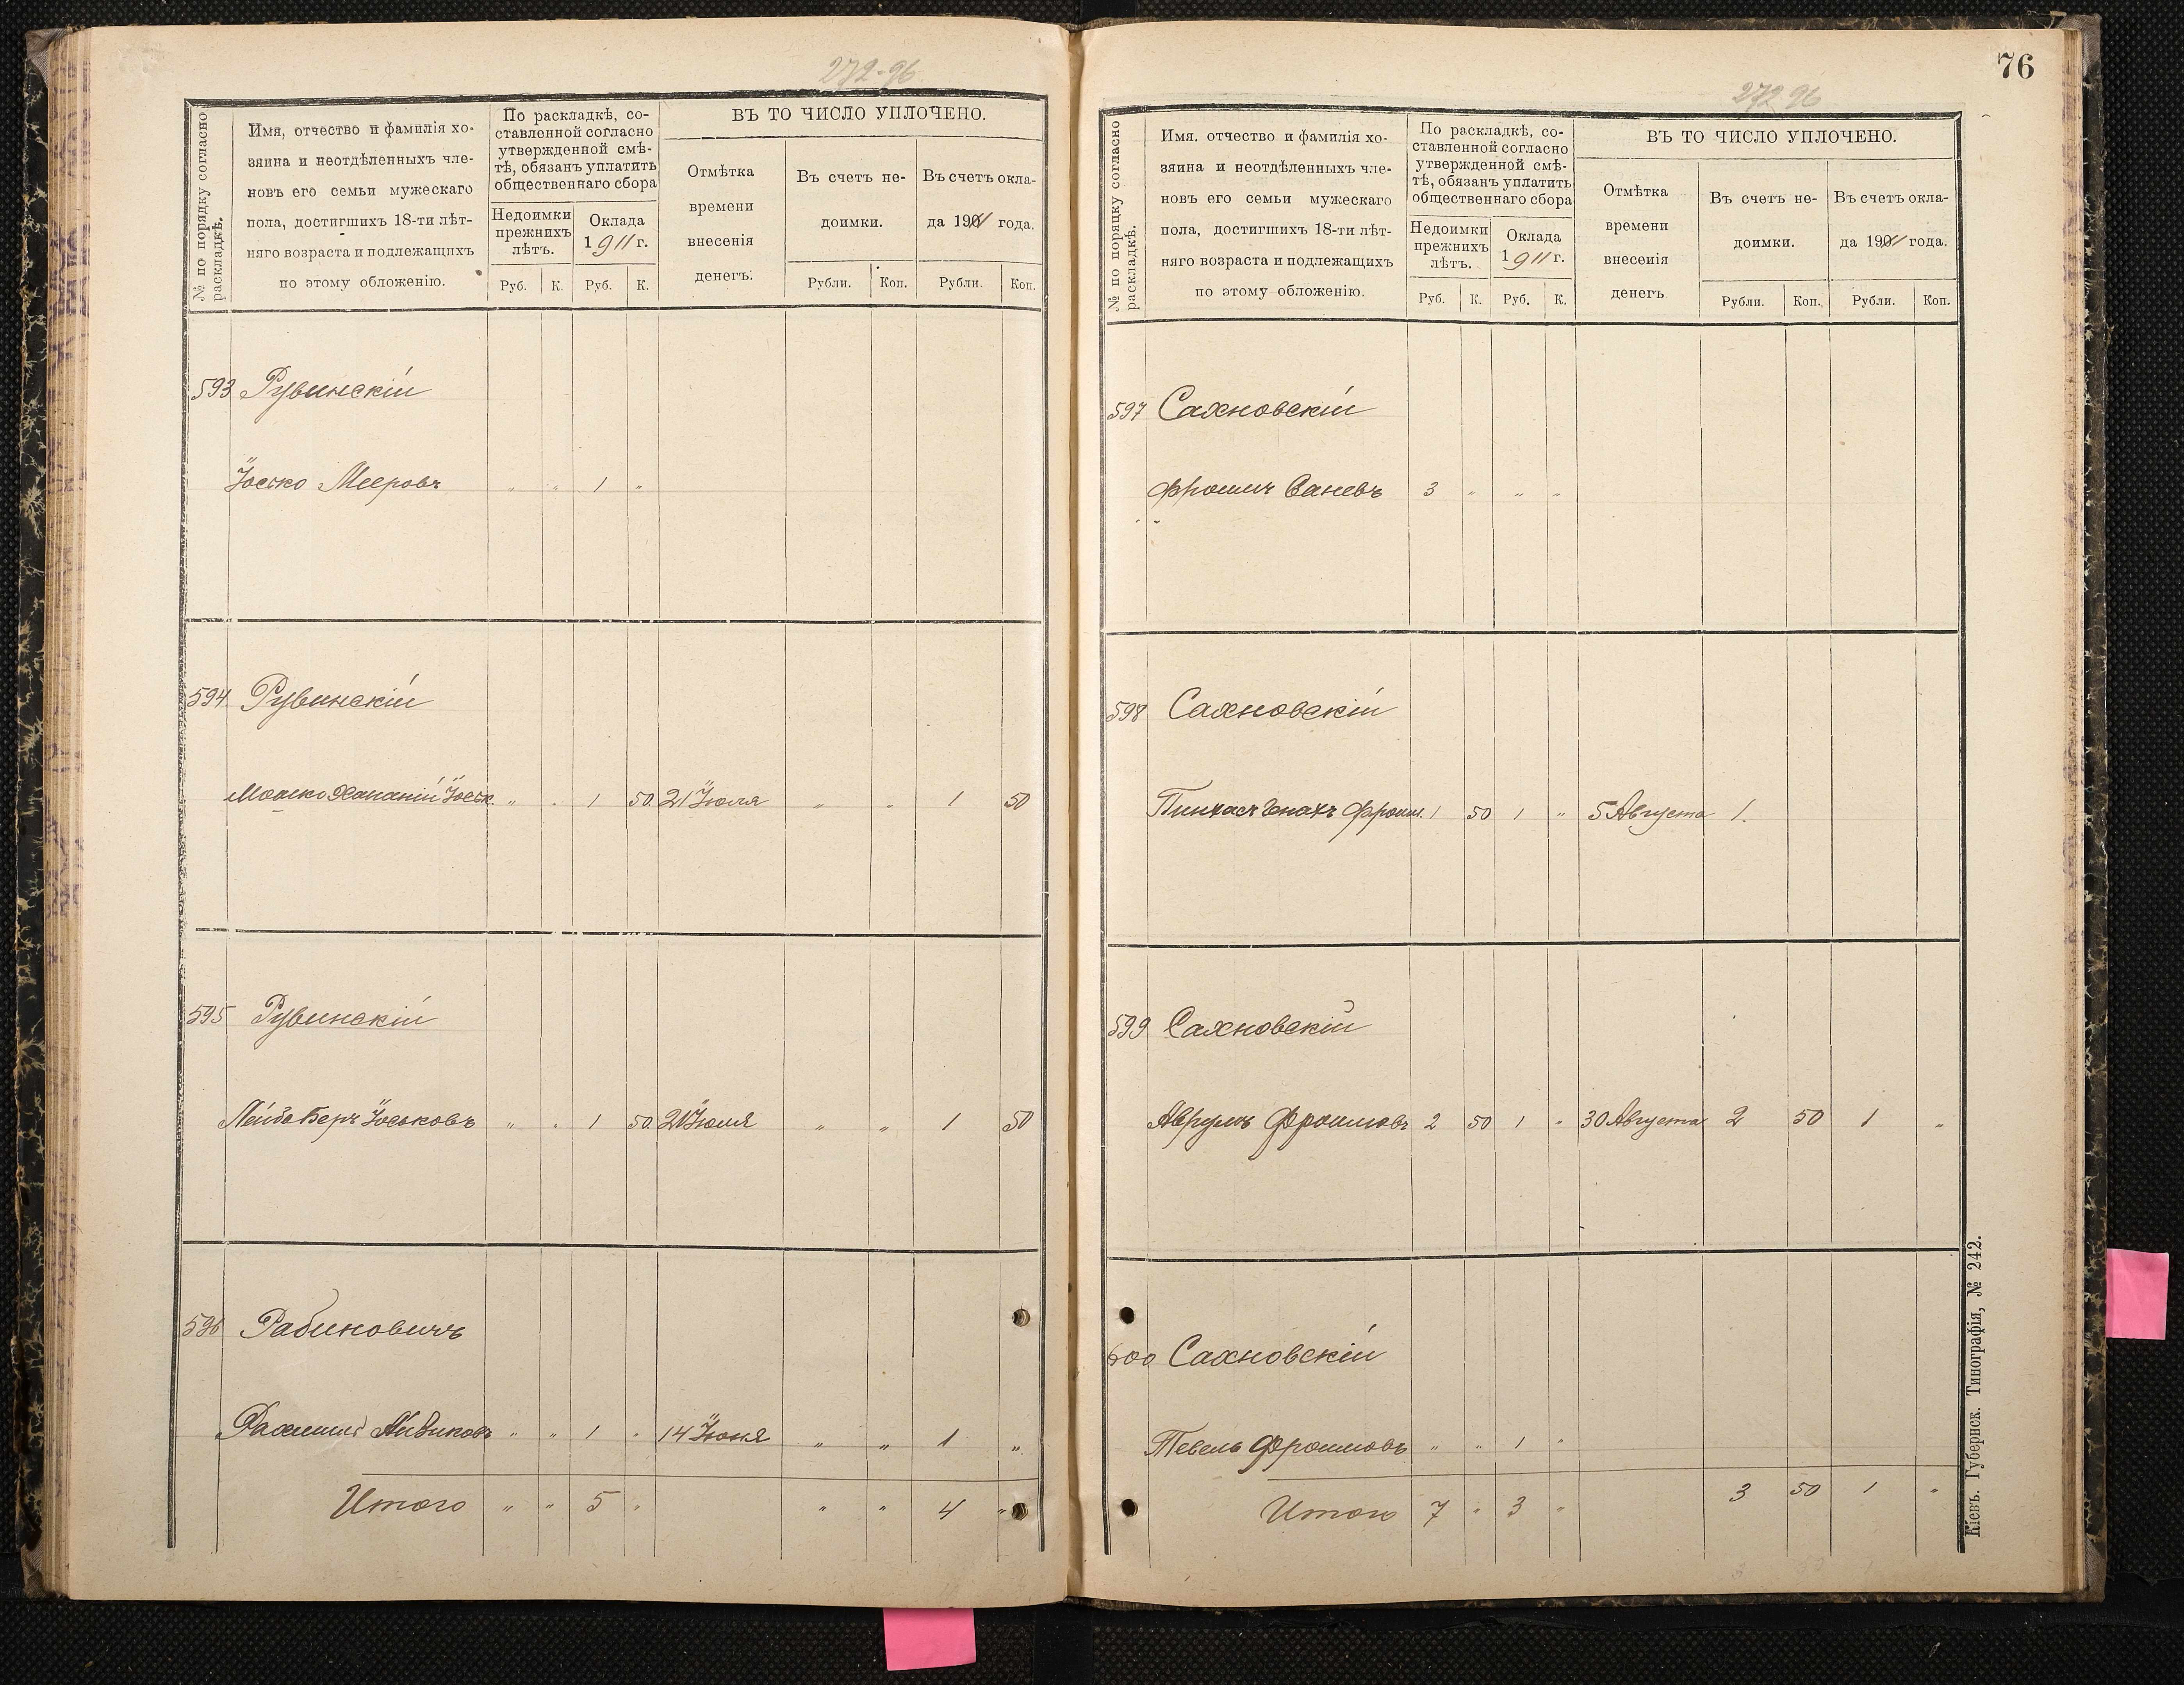 272-96
№ по порядку согласно раскладкѣ.
Имя, отчество и фамилія хо-
зяина и неотдѣленныхъ чле-
новъ его семьи мужескаго
пола, достигшихъ 18-ти лѣт-
няго возраста и подлежащихъ
по этому обложенію.
По раскладкѣ, со-
ставленной согласно
утвержденной смѣ-
тѣ, обязанъ уплатить
общественнаго сбора
Недоимки прежнихъ лѣтъ.
Оклада 1911 г.
Руб. К. Руб. К.
ВЪ ТО ЧИСЛО УПЛОЧЕНО.
Отмѣтка времени внесенія денегъ.
Въ счетъ не-
доимки.
Въ счетъ окла-
да 1911 года.
Рубли. Коп. Рубли. Коп.
593 Рувинскій
Іосько Мееровъ " " 1 "
594 Рувинскій
Мошко Хананій Іоськ. " " 1 50 21 Іюля " " 1 50
595 Рувинскій
Лейба Беръ Іоськовъ " " 1 50 21 Іюля " " 1 50
596 Рабиновичъ
" " 1 " 14 Іюня " " 1 "
Итого " " 5 " " " 4 "
76
272 96
№ по порядку согласно раскладкѣ.
Имя. отчество и фамилія хо-
зяина и неотдѣленныхъ чле-
новъ его семьи мужескаго
пола, достигшихъ 18-ти лѣт-
няго возраста и подлежащихъ
по этому обложенію.
По раскладкѣ, со-
ставленной согласно
утвержденной смѣ-
тѣ, обязанъ уплатить
общественнаго сбора
Недоимки прежнихъ лѣтъ.
Оклада 1911 г.
Руб. К. Руб. К.
ВЪ ТО ЧИСЛО УПЛОЧЕНО.
Отмѣтка времени внесенія денегъ
Въ счетъ не-
доимки.
Въ счетъ окла-
да 1911 года.
Рубли. Коп. Рубли. Коп.
597 Сахновскій
Фроимъ 3 " " "
598 Сахновскій
Пинхасъ Енохъ Фроим. 1 50 1 " 5 Августа 1.
599 Сахновскій
Аврумъ Фроимовъ 2 50 1 " 30 Августа 2 50 1 "
600 Сахновскій
Тевель Фроимовъ " " 1 "
Итого 7 " 3 " 3 50 1 "
Кіевъ. Губернск. Типографія, № 242.